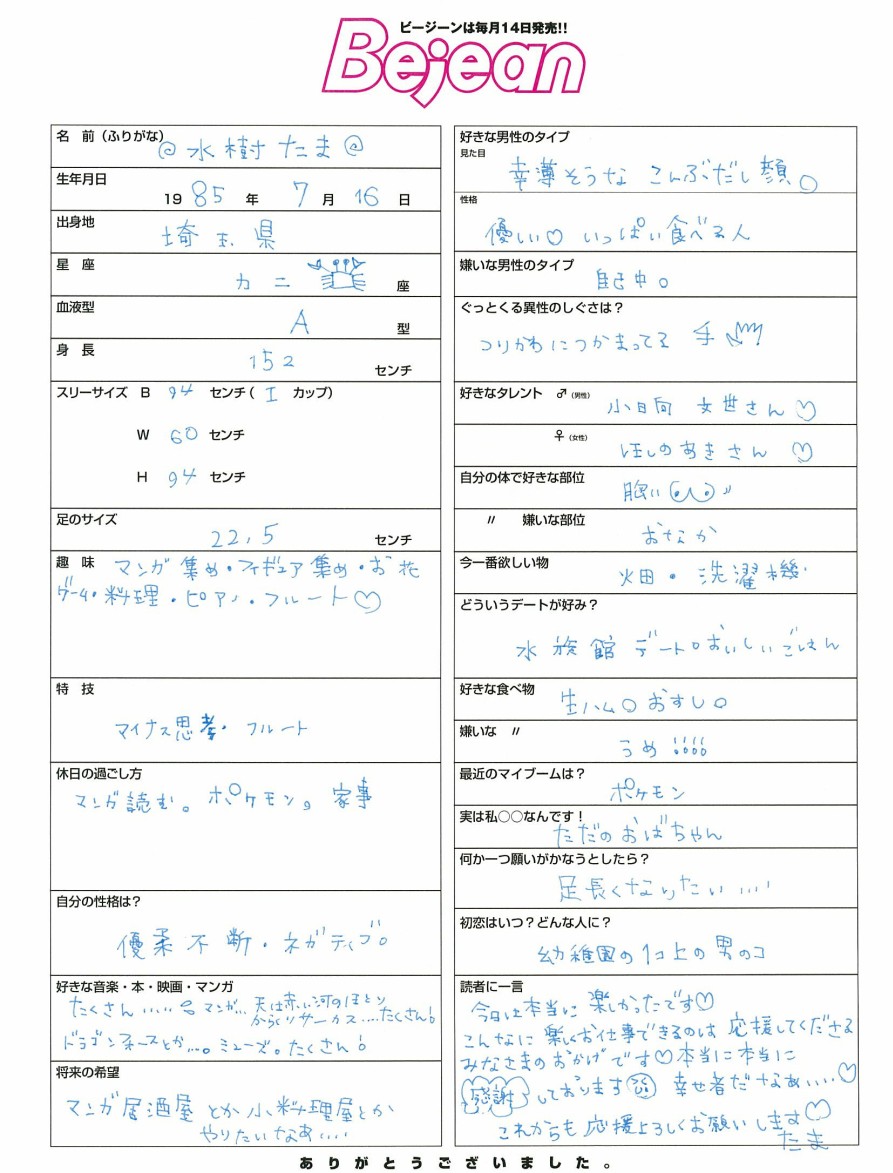 ビージーンは毎月14日発売!!
Bejean
名 前（ふりがな）
@ 水樹 たま @
生年月日
19 85 年 7 月 16 日
出身地
埼玉県
星 座
カニ 座
血液型
A 型
身 長
152 センチ
スリーサイズ B 94 センチ( I カップ)
W 60 センチ
H 94 センチ
足のサイズ
22,5 センチ
趣 味 マンガ集め・フィギュア集め・お花
ゲーム・料理・ピアノ・フルート♡
特 技
マイナス思考・フルート
休日の過ごし方
マンガ読む。ポケモン。家事
自分の性格は？
優柔不断・ネガティブ。
好きな音楽・本・映画・マンガ
たくさん‥‥ マンガ… 天は赤い河のほとり
からくりサーカス‥‥たくさん!
ドラゴンフォースとか…。ミューズ。たくさん!
将来の希望
マンガ居酒屋とか小料理屋とか
やりたいなあ‥‥
好きな男性のタイプ
見た目
幸薄そうな こんぶだし顔。
性格
優しい♡ いっぱい食べる人
嫌いな男性のタイプ
自己中。
ぐっとくる異性のしぐさは？
つりかわにつかまってる 手
好きなタレント ♂（男性）
小日向 文世さん♡
♀（女性）
ほしのあきさん♡
自分の体で好きな部位
胸い
〃 嫌いな部位
おなか
今一番欲しい物
畑・洗濯機
どういうデートが好み？
水族館デート。おいしいごはん
好きな食べ物
生ハム。おすし。
嫌いな 〃
うめ !!!!
最近のマイブームは？
ポケモン
実は私○○なんです！
ただのおばちゃん
何か一つ願いがかなうとしたら？
足長くなりたい‥‥
初恋はいつ？どんな人に？
幼稚園の1コ上の男のコ
読者に一言
今日は本当に 楽しかったです♡
こんなに楽しくお仕事できるのは 応援してくださる
みなさまのおかげです♡本当に本当に
感謝しております 幸せ者だなぁ‥‥♡
これからも応援よろしくお願いします♡
たま
ありがとうございました。